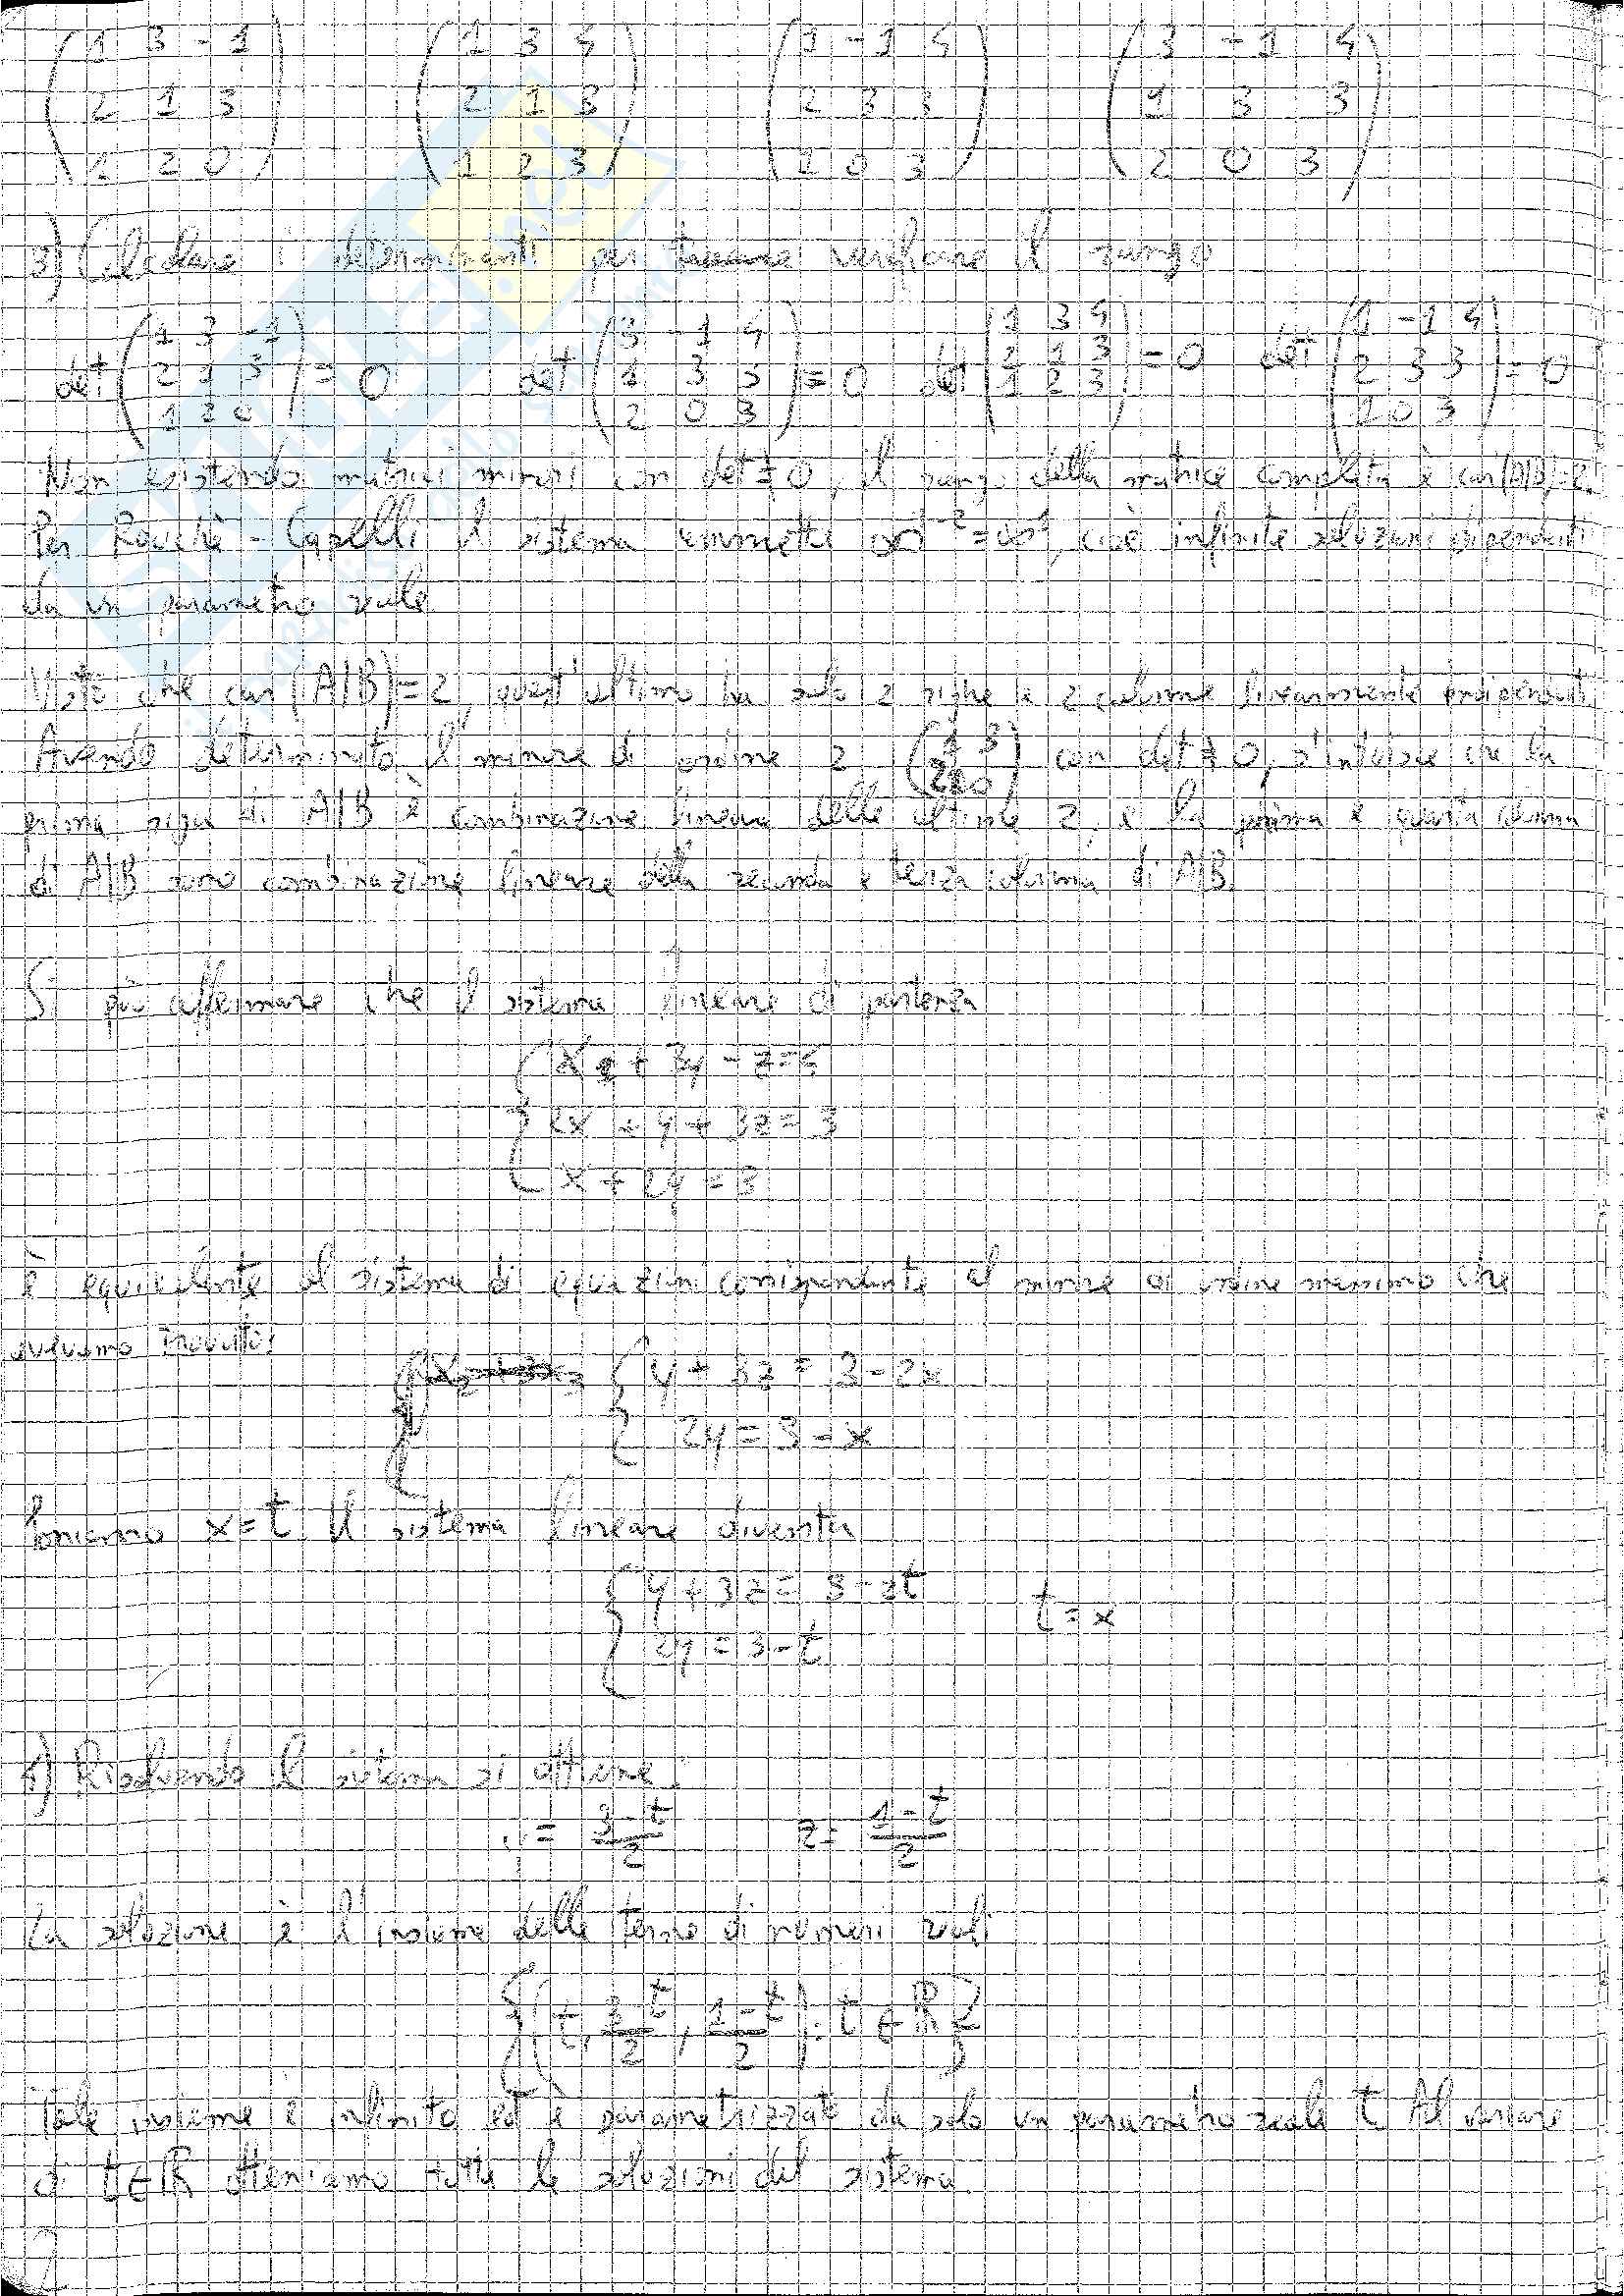 (1 3 -1 / 2 1 3 / 1 2 0) (1 3 4 / 2 1 3 / 1 2 3) (1 -1 4 / 2 3 3 / 1 0 3) (3 -1 4 / 1 3 3 / 2 0 3)
3) Calcolare i determinanti per verificare il rango
det (1 3 -1 / 2 1 3 / 1 2 0) = 0 det (3 -1 4 / 1 3 3 / 2 0 3) = 0 det (1 3 4 / 2 1 3 / 1 2 3) = 0 det (1 -1 4 / 2 3 3 / 1 0 3) = 0
Non esistendo matrici minori con det ≠ 0, il rango della matrice completa è car(A|B)=2.
Per Rouchè-Capelli il sistema ammette = ∞¹, cioè infinite soluzioni dipendenti
da un parametro reale.
Visto che car(A|B)=2, quest'ultimo ha solo 2 righe e 2 colonne linearmente indipendenti.
Avendo determinato il minore di ordine 2 (1 3 / 2 0) con det ≠ 0, che la
prima riga di A|B è combinazione lineare delle ultime 2, e la prima e quarta colonna
di A|B sono combinazione lineare della seconda e terza colonna di A|B.
Si può affermare che il sistema lineare di partenza
{ x + 3y - z = 4
2x + y + 3z = 3
x + 2y = 3
è equivalente al sistema di equazioni corrispondente al minore di ordine massimo che
avevamo trovato:
{ y + 3z = 3 - 2x
2y = 3 - x
Poniamo x = t. Il sistema lineare diventa
{ y + 3z = 3 - 2t t = x
2y = 3 - t
4) Risolvendo il sistema si ottiene:
y = (3-t)/2 z = (1-t)/2
La soluzione è l'insieme delle terne di numeri reali
{(t, (3-t)/2, (1-t)/2) : t ∈ R}
Tale insieme è infinito ed è parametrizzato da solo un parametro reale t. Al variare
di t ∈ R otteniamo tutte le soluzioni del sistema.